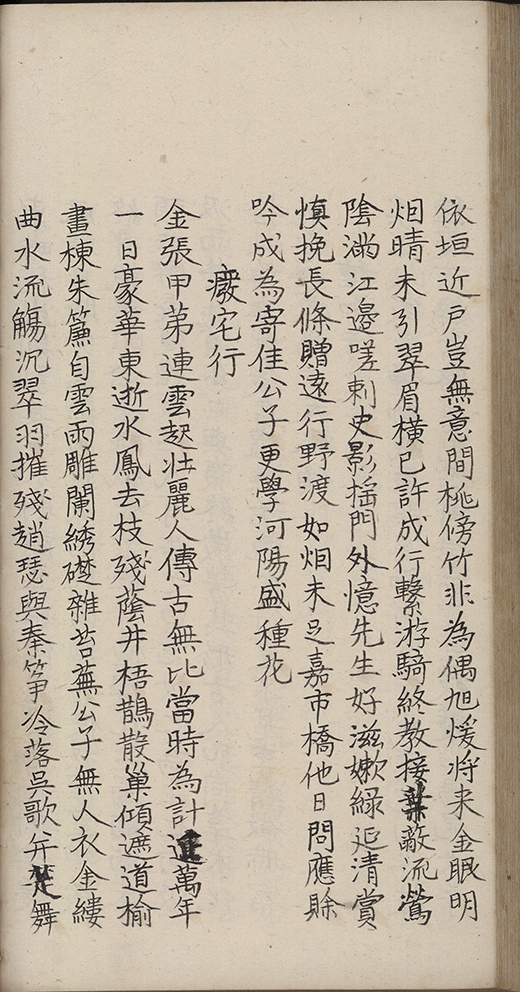 依垣近戶豈無意間桃傍竹非為偶旭煖将来金眠明
烟晴未引翠眉橫已許成行繫游騎終教接葉蔽流鶯
陰滿江邊嗟刺史影搖門外憶先生好滋嫩緑延清賞
慎挽長條贈遠行野渡如烟未足嘉市橋他日問應賒
吟成為寄佳公子更學河陽盛種花
癈宅行
金張甲苐連雲起壯麗人傳古無比當時為計萬年
一日豪華東逝水鳳去枝殘蔭井梧鵲散巢傾遮道榆
畫棟朱簾自雲雨雕闌綉礎雜苔蕪公子無人衣金縷
曲水流觴沉翠羽摧殘趙瑟與秦箏冷落吳歌并楚舞